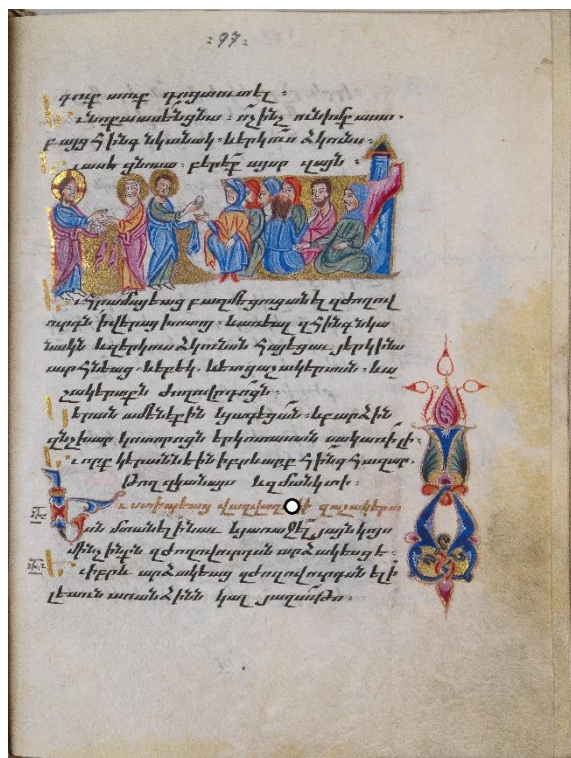 97
դուք տուք դոցա ուտել.
Եւ նոքա ասեն ցնա. ոչինչ ունիմք աստ.
բայց հինգ նկանակ. եւ երկուս ձկունս.
Եւ ասէ ցնոսա. բերէք այսր զայն.
Եւ հրամայեաց բազմեցուցանել զժողով
ուրդն ի վերայ խոտոյ. եւ առեալ զհինգ նկա
նակն եւ զերկուս ձկունսն հայեցաւ յերկինս
աւրհնեաց. եւ եբեկ. եւ ետ ցաշակերտսն. եւ ա
շակերտքն ժողովրդոցն.
Կերան ամենեքին եւ յագեցան. եւ բարձին
զնշխար կոտորոցն երկոտասան սակառի լի.
Եւ որք կերանն էին իբրեւ արք հինգ հազար.
թող զկանայս եւ զմանկտի.
Եւ ստիպեաց վաղվաղ կի զաշակերտ
սն մտանել ի նաւ եւ յառաջել յայնկոյս
մինչ ինքն զժողովուրդսն արձակեսցէ.
Եւ իբրեւ արձակեաց զժողովուրդսն ել ի
լեառն առանձինն կալ յաղաւթս.